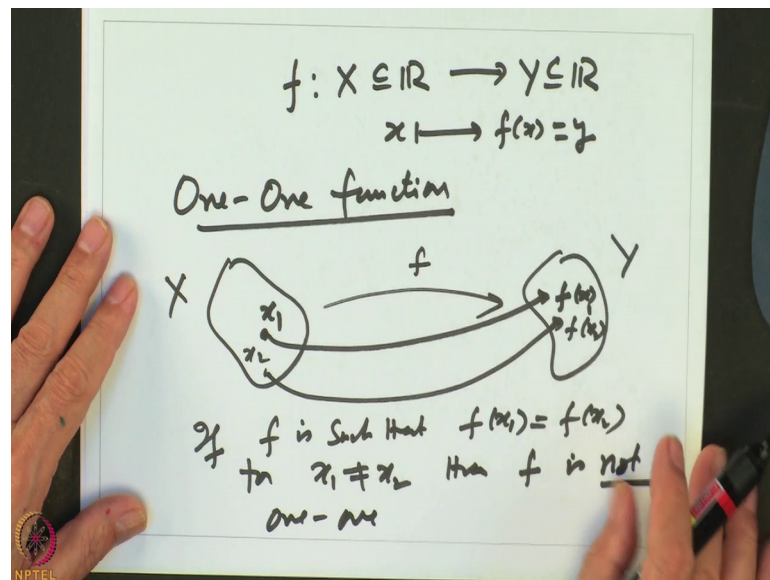 f : X ⊆ ℝ ⟶ Y ⊆ ℝ
x ⟼ f(x) = y
One-One function
f
X
Y
x₁
x₂
f(x₁)
f(x₂)
If f is such that f(x₁) = f(x₂)
for x₁ ≠ x₂ then f is not
one-one
NPTEL